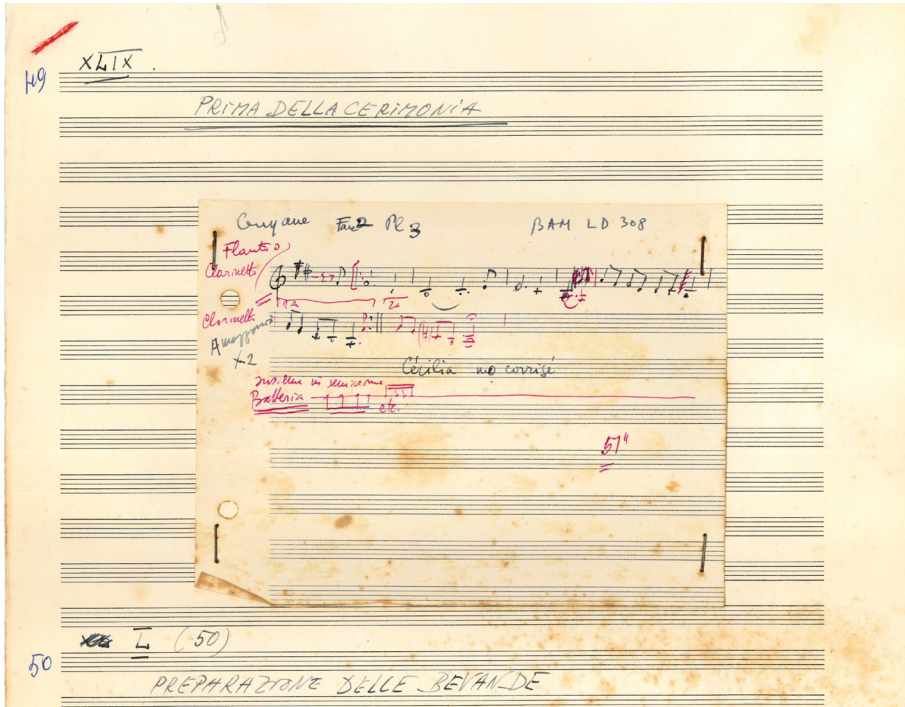 XLIX.
49
PRIMA DELLA CERIMONIA
Guyane Face 2 Pl 3 BAM LD 308
Flauto o
Clarinetto
1a 2a
Clarinetto
Amazzonia
x2
Cécilia no corrigé
in semicrome
Batteria etc.
51"
L (50)
50
PREPARAZIONE DELLE BEVANDE